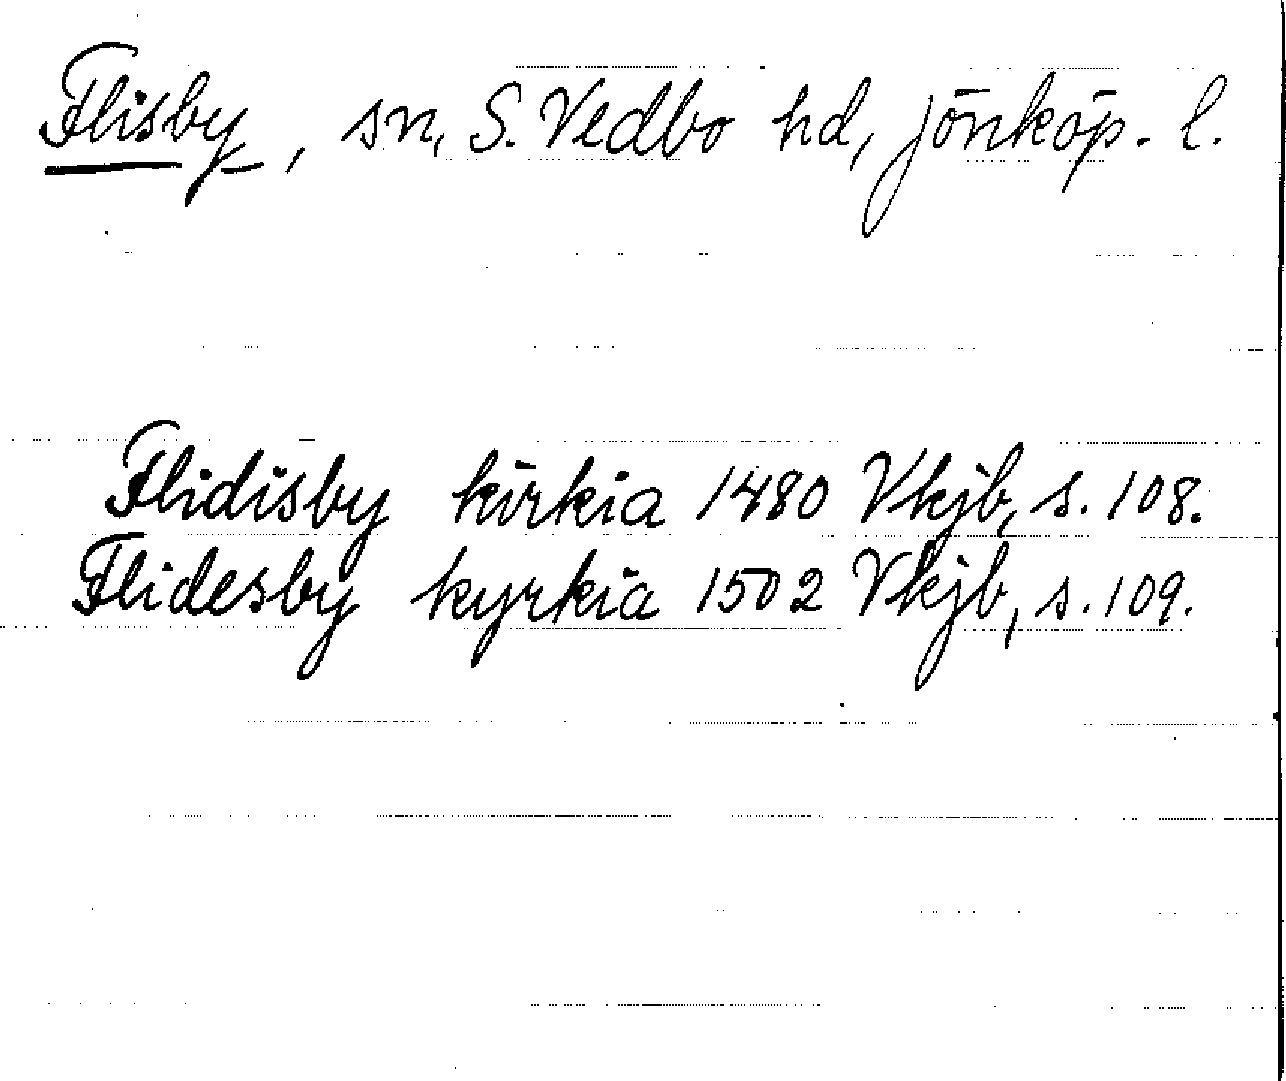 Flisby, sn, S. Vedbo hd, Jönköp. l.
Flidisby kirkia 1480 Vkjb, s. 108.
Flidesby kyrkia 1502 Vkjb, s. 109.